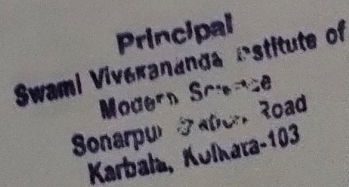 Principal
Swami Vivekananda Institute of
Modern Science
Sonarpur Station Road
Karbala, Kolkata-103